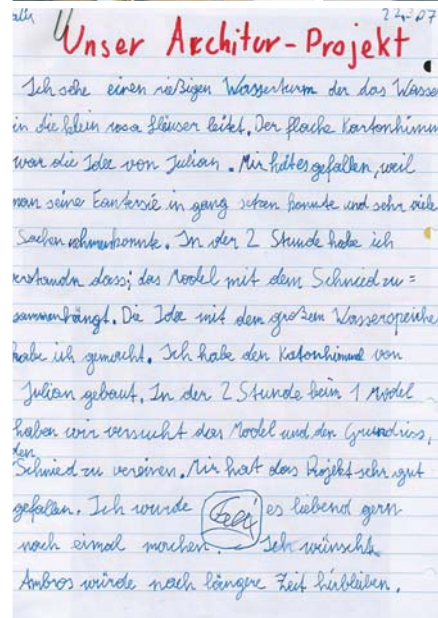 22.3.07
Unser Architur-Projekt
Ich sehe einen rießigen Wasserturm der das Wasse
in die klein rosa Häuser leitet. Der flache Kartonhimm
war die Idee von Julian. Mir hat es gefallen, weil
man seine Fantersie in gang setzen konnte und sehr viele
Sachen nehmen konnte. In der 2 Stunde habe ich
verstandn dass; das Model mit dem Schnied zu=
sammenhängt. Die Idee mit dem großem Wasserspeiche
habe ich gemacht. Ich habe den Katonhimmel von
Julian gebaut. In der 2 Stunde beim 1 Model
haben wir versucht das Model und den Grundriss,
den
Schnied zu vereinen. Mir hat das Projekt sehr gut
gefallen. Ich würde es liebend gern
noch eimal machen. Ich wünschte
Ambros würde noch längere Zeit hirbleiben.